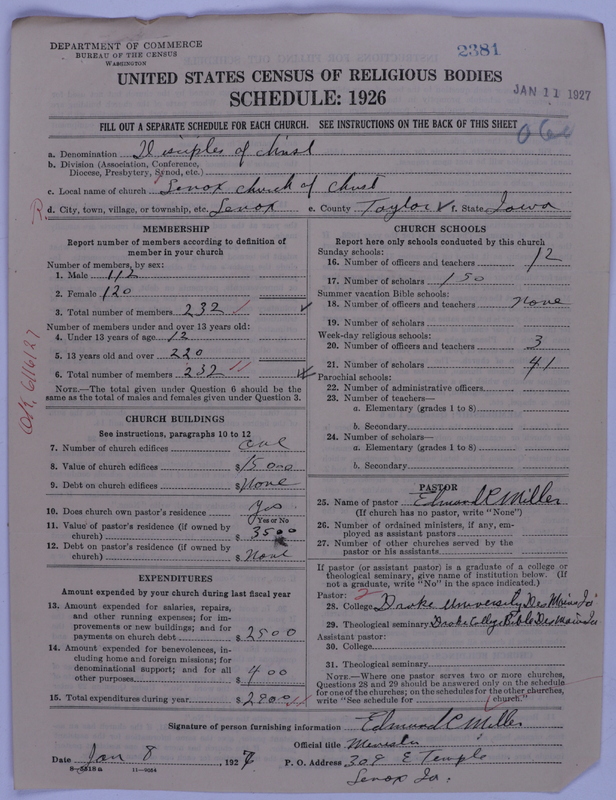 DEPARTMENT OF COMMERCE
BUREAU OF THE CENSUS
WASHINGTON
2381
UNITED STATES CENSUS OF RELIGIOUS BODIES
SCHEDULE: 1926
JAN 11 1927
FILL OUT A SEPARATE SCHEDULE FOR EACH CHURCH. SEE INSTRUCTIONS ON THE BACK OF THIS SHEET
a. Denomination Disciples of Christ
b. Division (Association, Conference,
Diocese, Presbytery, Synod, etc.)
c. Local name of church Lenox Church of Christ
d. City, town, village, or township, etc. Lenox e. County Taylor f. State Iowa
MEMBERSHIP
Report number of members according to definition of
member in your church
Number of members, by sex:
1. Male 112
2. Female 120
3. Total number of members 232
Number of members under and over 13 years old:
4. Under 13 years of age 12
5. 13 years old and over 220
6. Total number of members 232
NOTE.—The total given under Question 6 should be the
same as the total of males and females given under Question 3.
CHURCH BUILDINGS
See instructions, paragraphs 10 to 12
7. Number of church edifices one
8. Value of church edifices $15000
9. Debt on church edifices $None
10. Does church own pastor's residence? Yes
Yes or No
11. Value of pastor's residence (if owned by
church) $3500
12. Debt on pastor's residence (if owned by
church) $None
EXPENDITURES
Amount expended by your church during last fiscal year
13. Amount expended for salaries, repairs,
and other running expenses; for im-
provements or new buildings; and for
payments on church debt $2500
14. Amount expended for benevolences, in-
cluding home and foreign missions; for
denominational support; and for all
other purposes $400
15. Total expenditures during year $2900
CHURCH SCHOOLS
Report here only schools conducted by this church
Sunday schools:
16. Number of officers and teachers 12
17. Number of scholars 150
Summer vacation Bible schools:
18. Number of officers and teachers none
19. Number of scholars
Week-day religious schools:
20. Number of officers and teachers 3
21. Number of scholars 41
Parochial schools:
22. Number of administrative officers
23. Number of teachers—
a. Elementary (grades 1 to 8)
b. Secondary
24. Number of scholars—
a. Elementary (grades 1 to 8)
b. Secondary
PASTOR
25. Name of pastor Edmund C Miller
(If church has no pastor, write "None")
26. Number of ordained ministers, if any, em-
ployed as assistant pastors
27. Number of other churches served by the
pastor or his assistants
If pastor (or assistant pastor) is a graduate of a college or
theological seminary, give name of institution below. (If
not a graduate, write "No" in the space indicated.)
Pastor: 2
28. College Drake University Des Moines Ia
29. Theological seminary Drake College Bible Des Moines Ia
Assistant pastor:
30. College
31. Theological seminary
NOTE.—Where one pastor serves two or more churches,
Questions 28 and 29 should be answered only on the schedule
for one of the churches; on the schedules for the other churches,
write "See schedule for church."
Signature of person furnishing information Edmund C Miller
Official title Minister
Date Jan 8, 1927 P. O. Address 309 E Temple
Lenox Ia.
11—9084